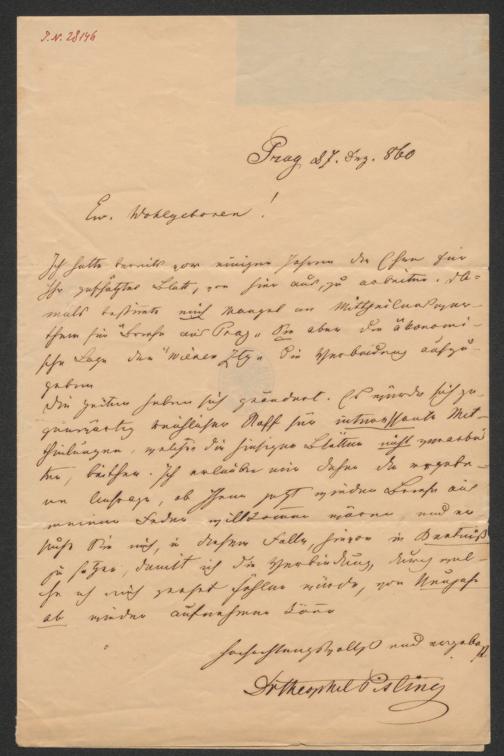 I.N. 28146
Prag 27. Dez. 860
Ew. Wohlgeboren!
Ich hatte bereits vor einigen Jahren die Ehre für
Ihr geschätztes Blatt, von hier aus, zu arbeiten. Da-
mals bestimmte mich Mangel an
für "Briefe aus Prag" Sie aber die ökonomi-
sche Lage der "Wiener Ztg" die Verbindung aufzu-
geben
Die Zeiten haben sich geändert. Es würde sich ge-
genwärtig reichlicher Stoff für interessante Mit-
theilungen, welche die hiesigen Blätter nicht verarbei-
ten, bieten. Ich erlaube mir daher die ergebe-
ne Anfrage, ob Ihnen jetzt wieder Briefe aus
meiner Feder willkommen wären, und er-
suche Sie mich, in diesem Falle, hievon in Kentniß
zu setzen, damit ich die Verbindung, durch wel-
che ich mich geehrt fühlen würde, von Neujahr
ab wieder aufnehmen könne
hochachtungsvollst und ergebenst
Dr Theophil Pisling